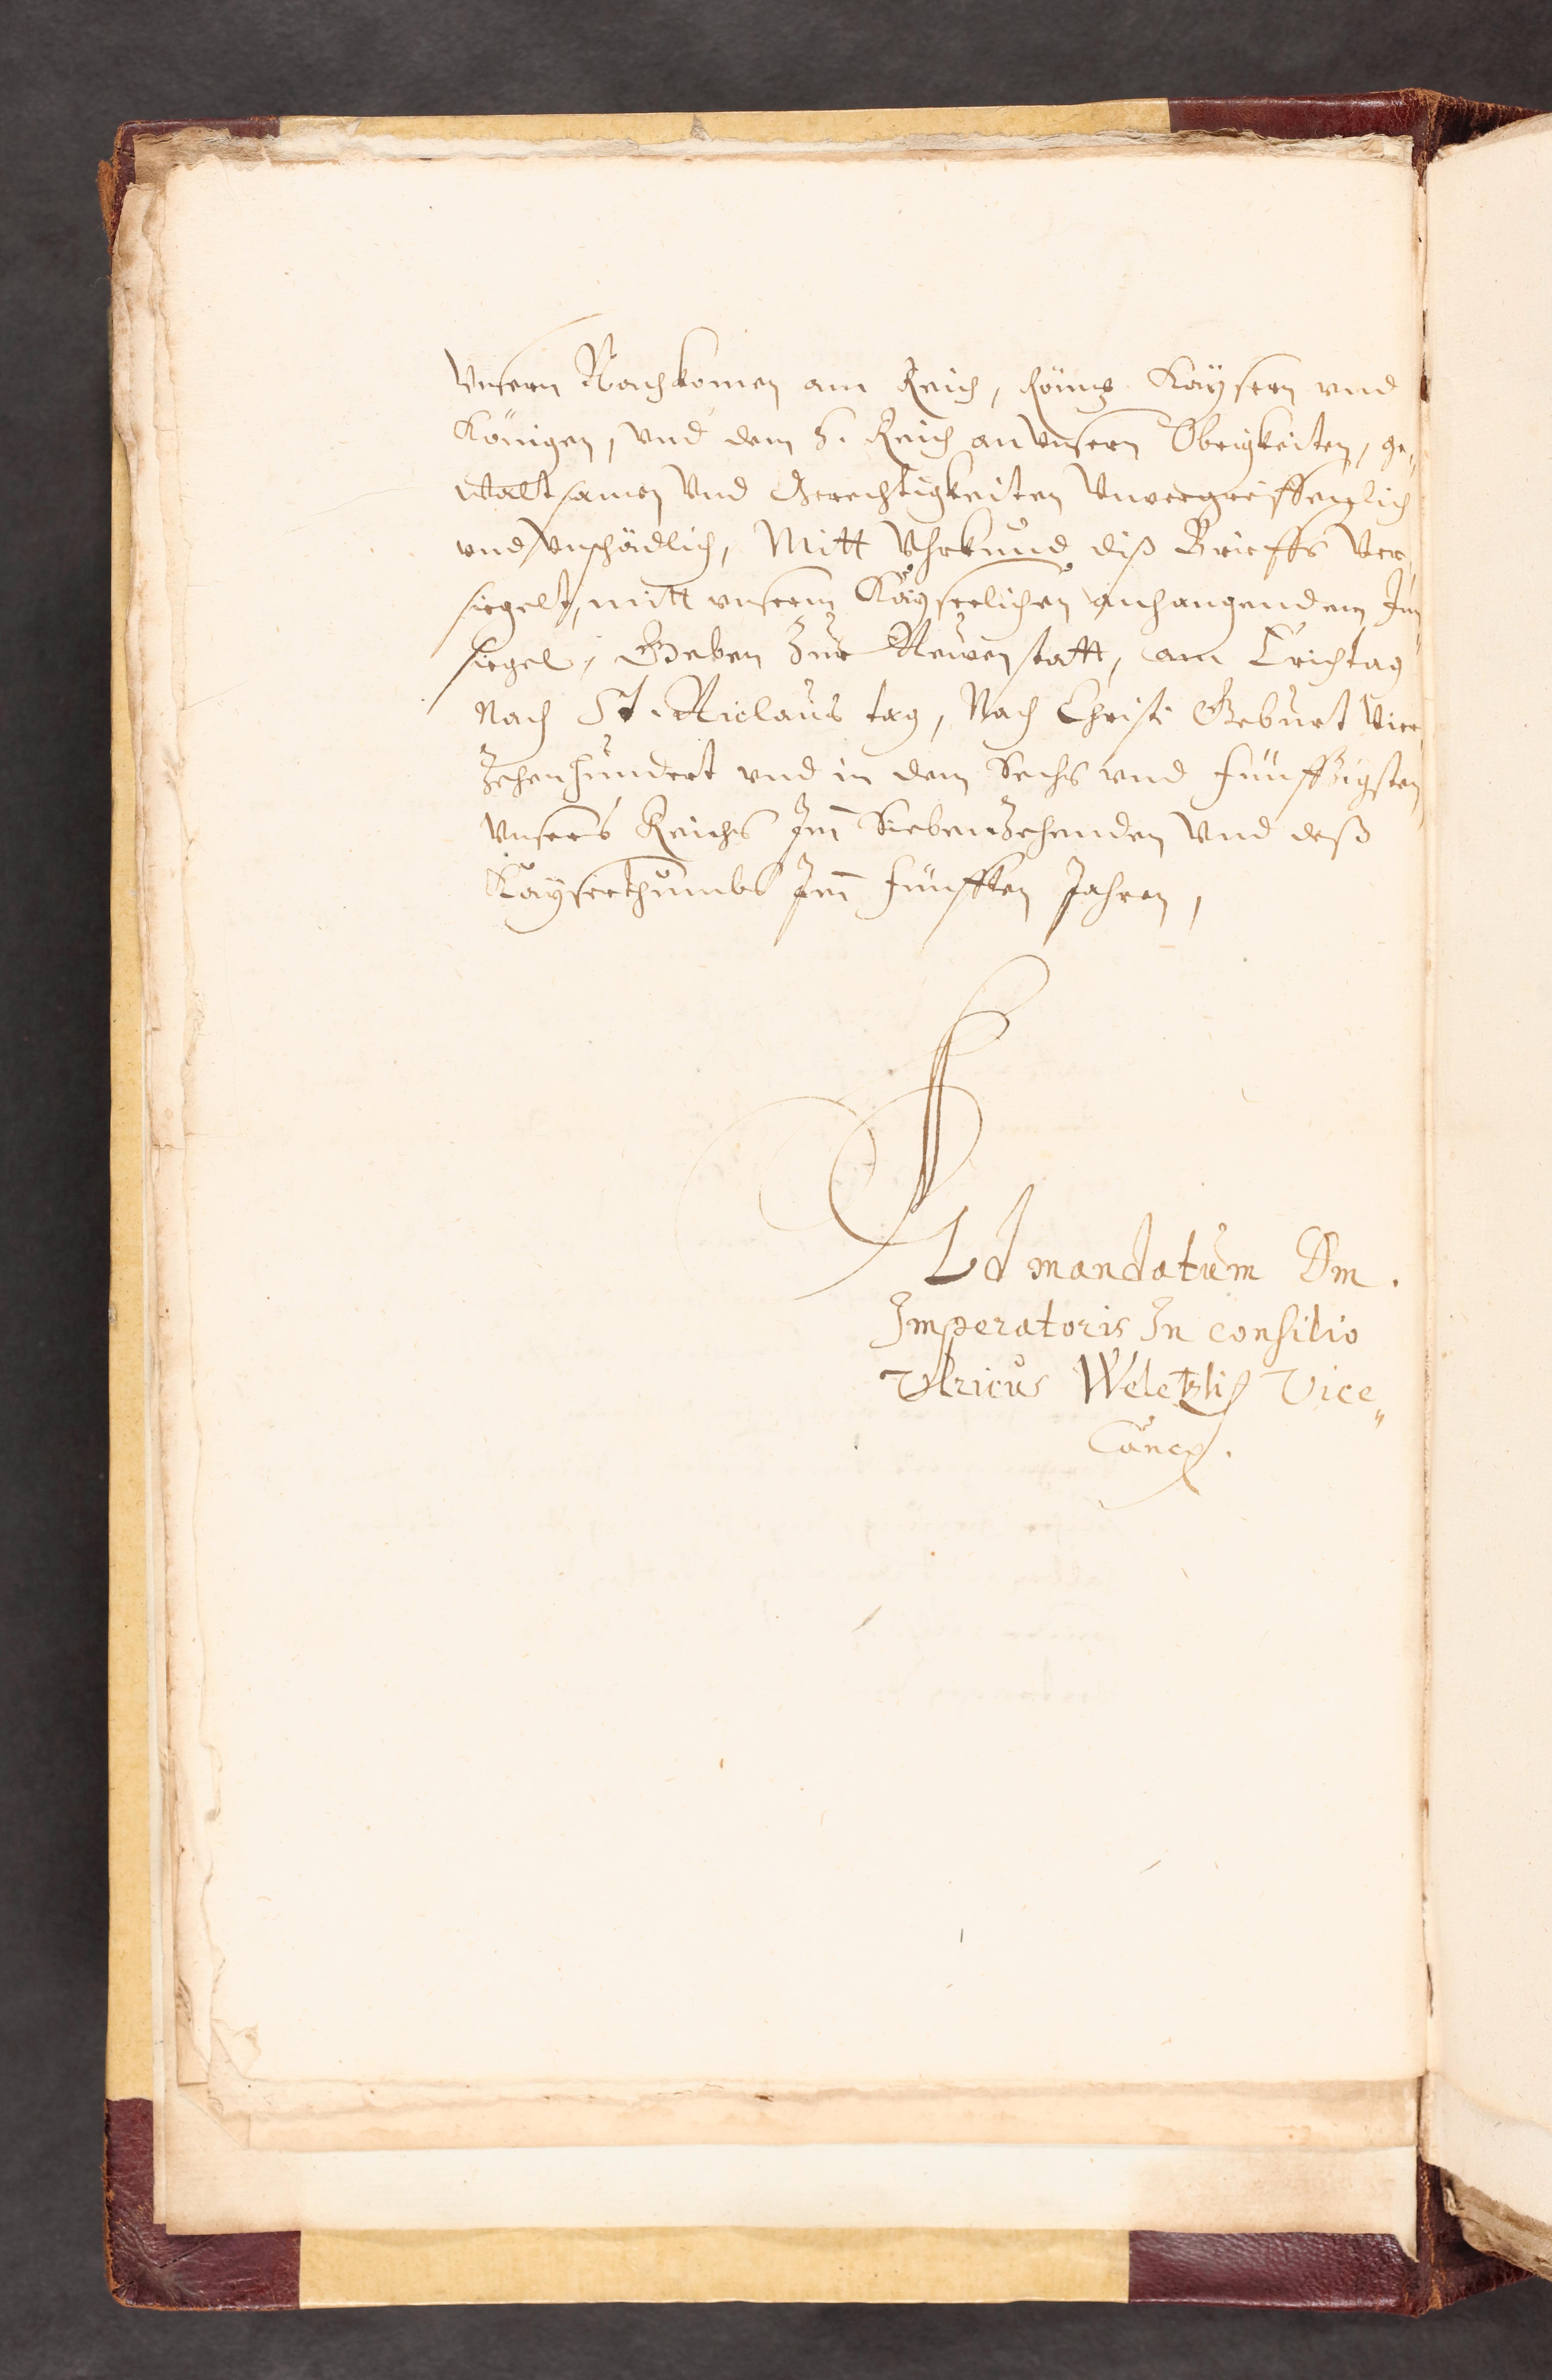 Vnsern Nachkomen am Reich, Römis. Kaÿsern vnd
Königen, Vnd dem H. Reich an Vnsern Obrigkeiten, ge„
waltsamen Vnd Gerechtigkeiten Vnvergreiffenlich
vnd Vnschädlich, Mitt Vhrkund diß Brieffs Ver„
siegelt, mitt vnserm Kaÿserlichen anhangendem In„
siegel, Geben Zur Newenstatt, am Erichtag
Nach St. Niclaus tag, Nach Christi Geburt Vier„
Zehenhundert vnd in dem Sechs vnd fünffzigsten
Vnsers Reichs Im̄ Siebenzehenden Vnd deß
Kaÿserthumbs Im̄ fünfften Jahren,
Ad mandatum Dm.
Imperatoris In consilio
Vlricus Weletzli Vice„
Canc.